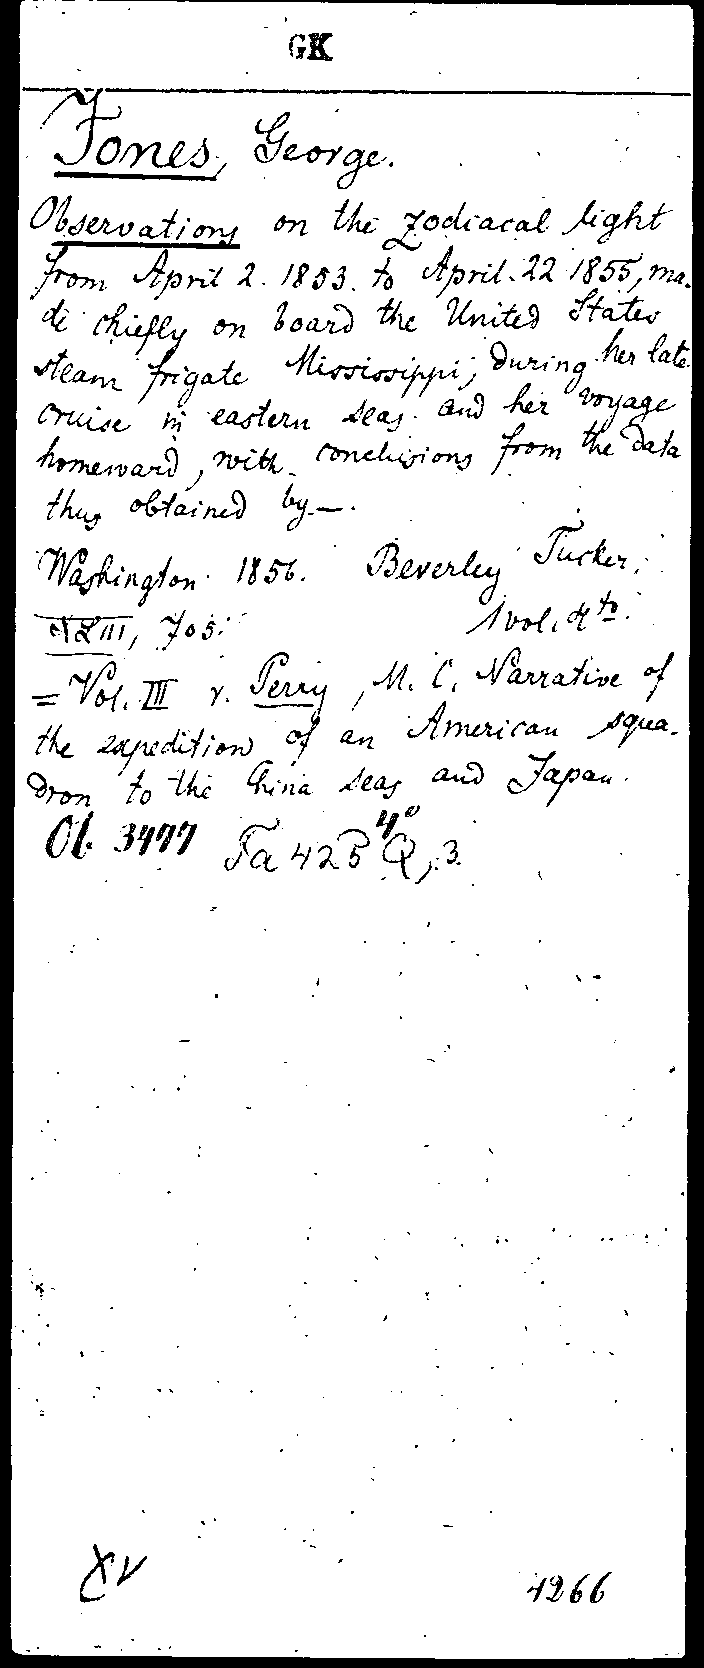 GK
Jones, George.
Observations on the zodiacal light
from April 2. 1853. to April. 22 1855, ma-
de chiefly on board the United States
steam frigate Mississippi, during her late
cruise in eastern seas. and her voyage
homeward, with conclusions from the data
thus obtained by —.
Washington 1856. Beverley Tucker.
1 vol. 4to.
705.
= Vol. III v. Perry, M. C. Narrative of
the expedition of an American squa-
dron to the China seas and Japan.
Ob. 3477 Fa 425 4° Q, 3.
4266